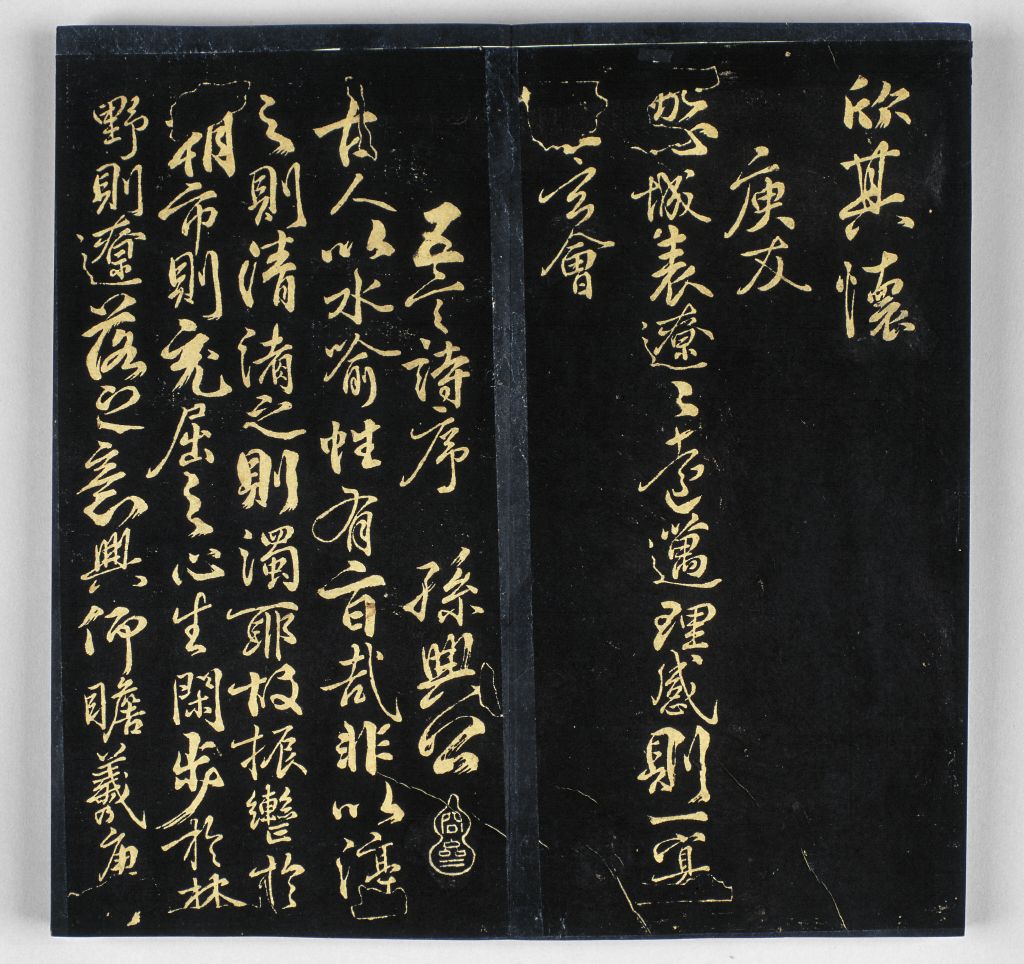 欣其懷
庾友
心域表遼〻遠邁理感則一冥
玄會
五言詩序 孫興公
古人以水喻性有旨哉非以渟
之則清淆之則濁耶故振轡於
朝市則充屈之心生閑步於林
野則遼落之意興仰瞻羲唐